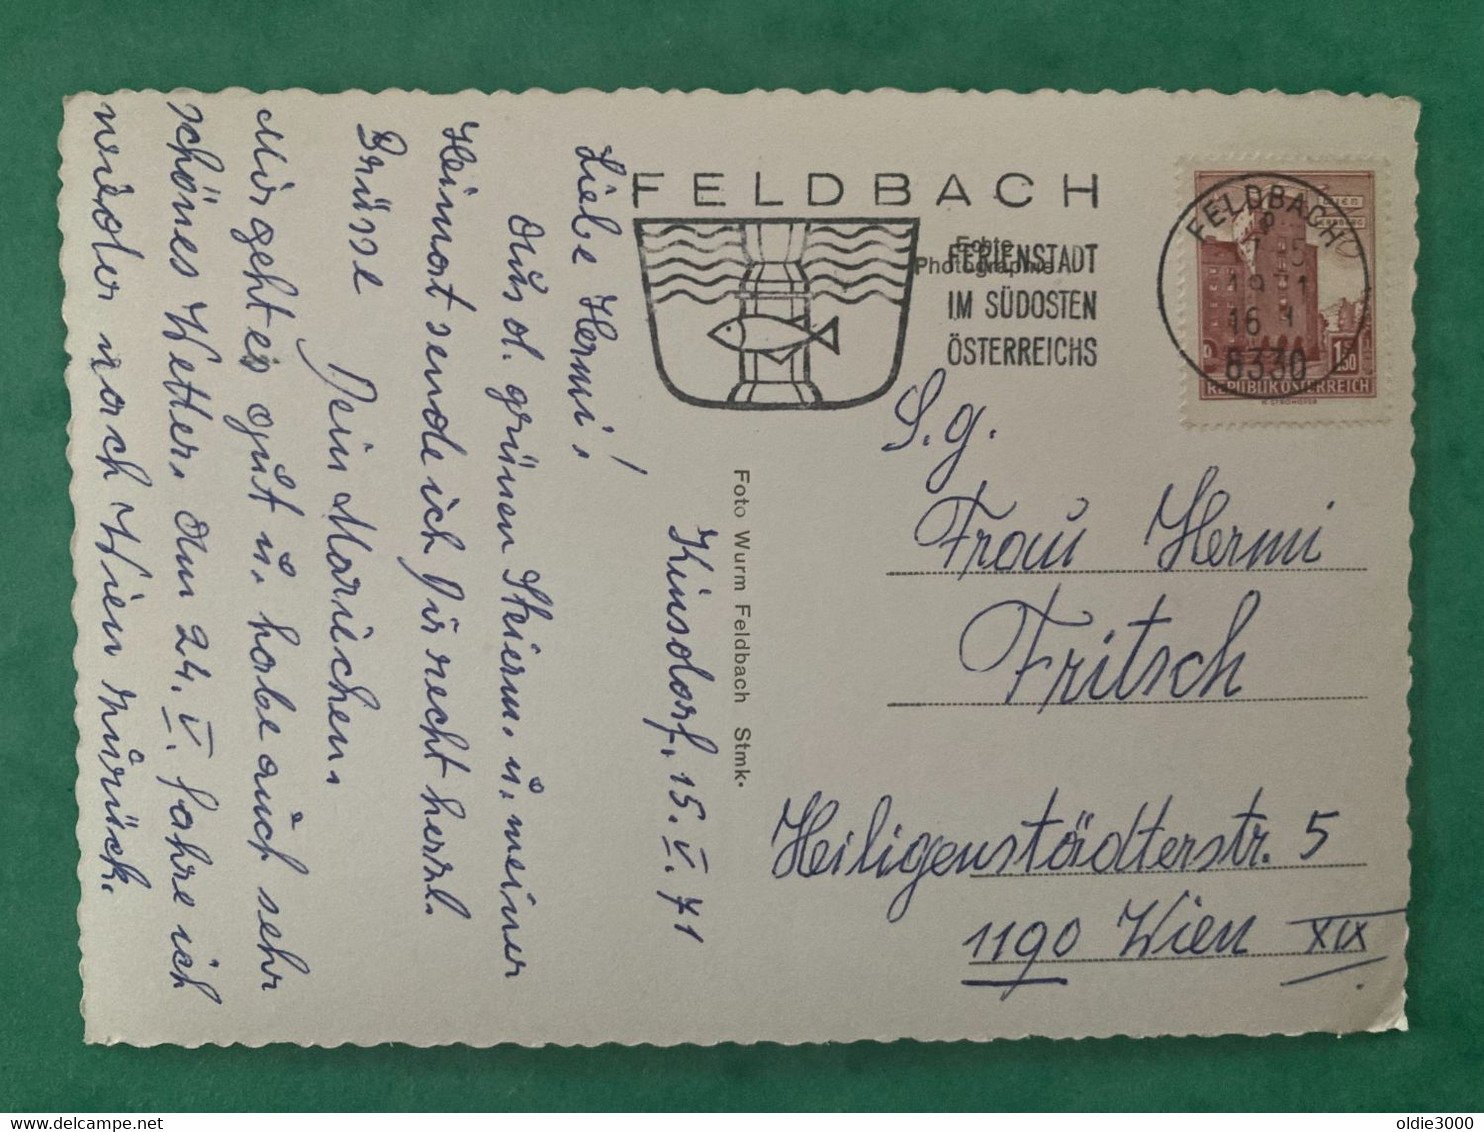 FELDBACH
FERIENSTADT
IM SÜDOSTEN
ÖSTERREICHS
Echte
Photographie
FELDBACH
1971
16
8330
1.50
REPUBLIK ÖSTERREICH
Kinsdorf, 15. V. 71
Liebe Hermi!
Aus d. grünen Steierm. u. meiner
Heimat sende ich Dir recht herzl.
Grüsse
Dein Mariechen.
Mir geht es gut u. habe auch sehr
schönes Wetter. Am 24. V. fahre ich
wieder nach Wien zurück.
Foto Wurm Feldbach Stmk.
S.g.
Frau Hermi
Fritsch
Heiligenstädterstr. 5
1190 Wien XIX
oldie3000